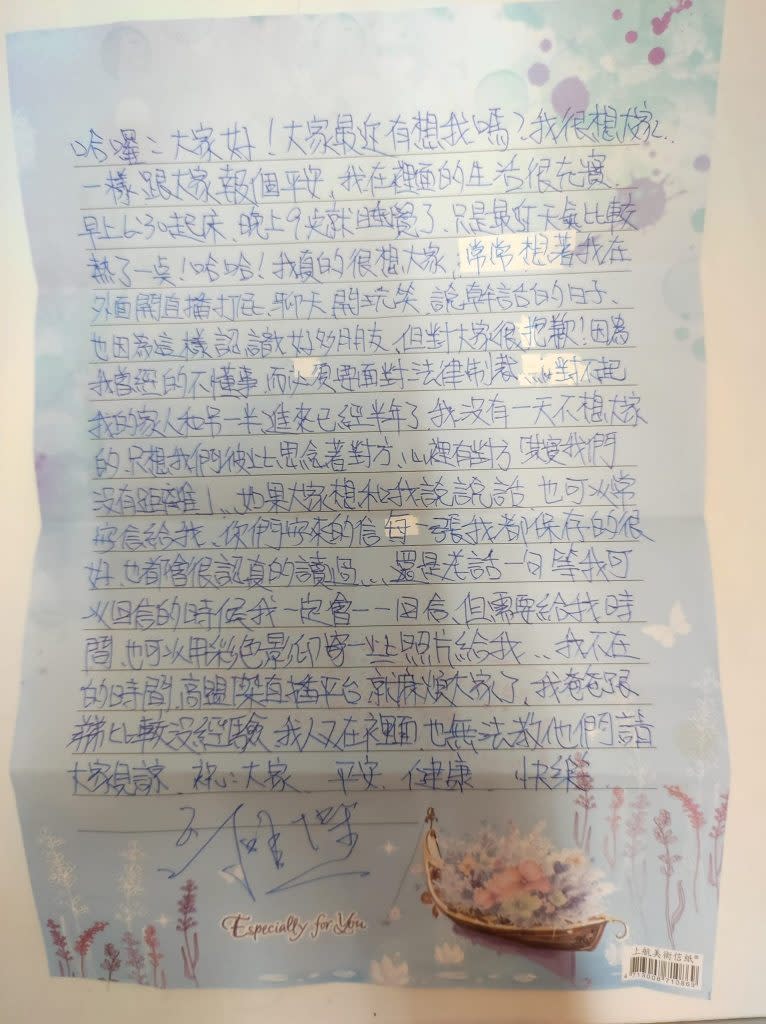 哈囉：大家好！大家最近有想我嗎？我很想大家…
一樣跟大家報個平安、我在裡面的生活很充實、
早上6:30起床、晚上9点就睡覺了、只是最近天氣比較
熱了一点！哈哈！我真的很想大家、常常想著我在
外面開直播打屁、聊天開玩笑、說幹話的日子、
也因為這樣認識好多朋友、但對大家很抱歉！因為
我曾經的不懂事而必須要面對法律制裁……對不起
我的家人和另一半進來已經半年了、我沒有一天不想大家
的、只想我們彼此思念著對方、心裡有對方「其實我們
沒有距離」…如果大家想和我說說話、也可以常
寄信給我、你們寄來的信每一張我都保存的很
好、也都會很認真的讀過…還是老話一句等我可
以回信的時候我一定會一一回信、但需要給我時
間、也可以用彩色影印寄一些照片給我…我不在
的時間、高盟傑直播平台就麻煩大家了、我爸爸跟
弟比較沒經驗、我人又在裡面、也無法教他們請
大家見諒、祝：大家 平安、健康 快樂
Especially for You
上航美術信紙®
4 715006 710869